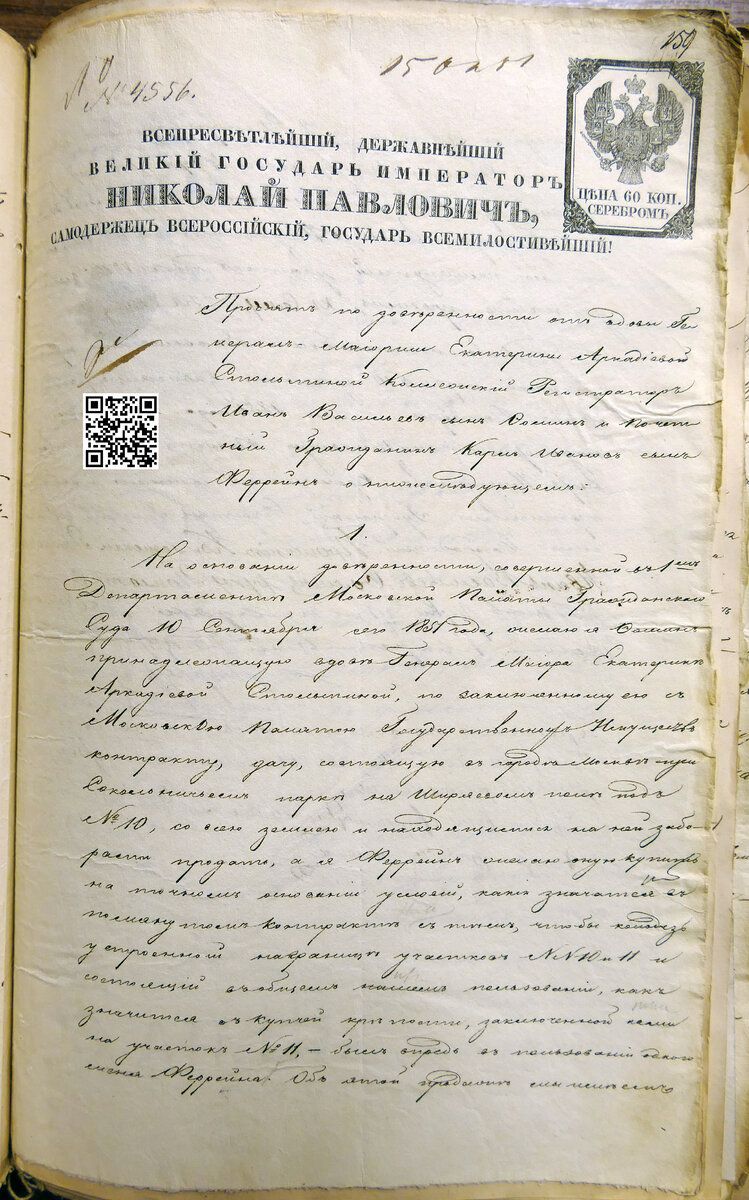 159
№ 4556.
15 Окт 51
ВСЕПРЕСВѢТЛѢЙШІЙ, ДЕРЖАВНѢЙШІЙ
ВЕЛИКІЙ ГОСУДАРЬ ИМПЕРАТОРЪ
НИКОЛАЙ ПАВЛОВИЧЪ,
САМОДЕРЖЕЦЪ ВСЕРОССІЙСКІЙ, ГОСУДАРЬ ВСЕМИЛОСТИВѢЙШІЙ!
ЦѢНА 60 КОП.
СЕРЕБРОМЪ
Просятъ по довѣренности отъ вдовы Ге
нералъ-Маіорши Екатерины Аркадіевой
Столыпиной Коллежскій Регистраторъ
Иванъ Васильевъ сынъ Соминъ и почет
ный Гражданинъ Карлъ Ивановъ сынъ
Феррейнъ о нижеслѣдующемъ:
1.
На основаніи довѣренности, совершенной въ 1мъ
Департаментѣ Московской Палаты Гражданскаго
Суда 10 Сентября сего 1851 года, желаю я Соминъ
принадлежащую вдовѣ Генералъ Маіора Екатеринѣ
Аркадіевой Столыпиной, по заключенному ею съ
Московскою Палатою Государственныхъ Имуществъ
контракту, дачу, состоящую въ городѣ Москвѣ при
Сокольничьемъ паркѣ на Ширяевомъ полѣ подъ
№ 10, со всею землею и находящимися на ней забо
рами продать, а я Феррейнъ желаю оную купить
на точномъ основаніи условій, какія значатся въ
помянутомъ контрактѣ съ тѣмъ, чтобы колодезь
устроенный на границѣ участковъ №№ 10 и 11 и
состоящій въ общемъ нашемъ пользованіи, какъ
значится въ купчей крѣпости, заключенной нами
на участокъ № 11, – былъ впредь въ пользованіи одного
меня Феррейна. Объ этой продажѣ мы имѣемъ